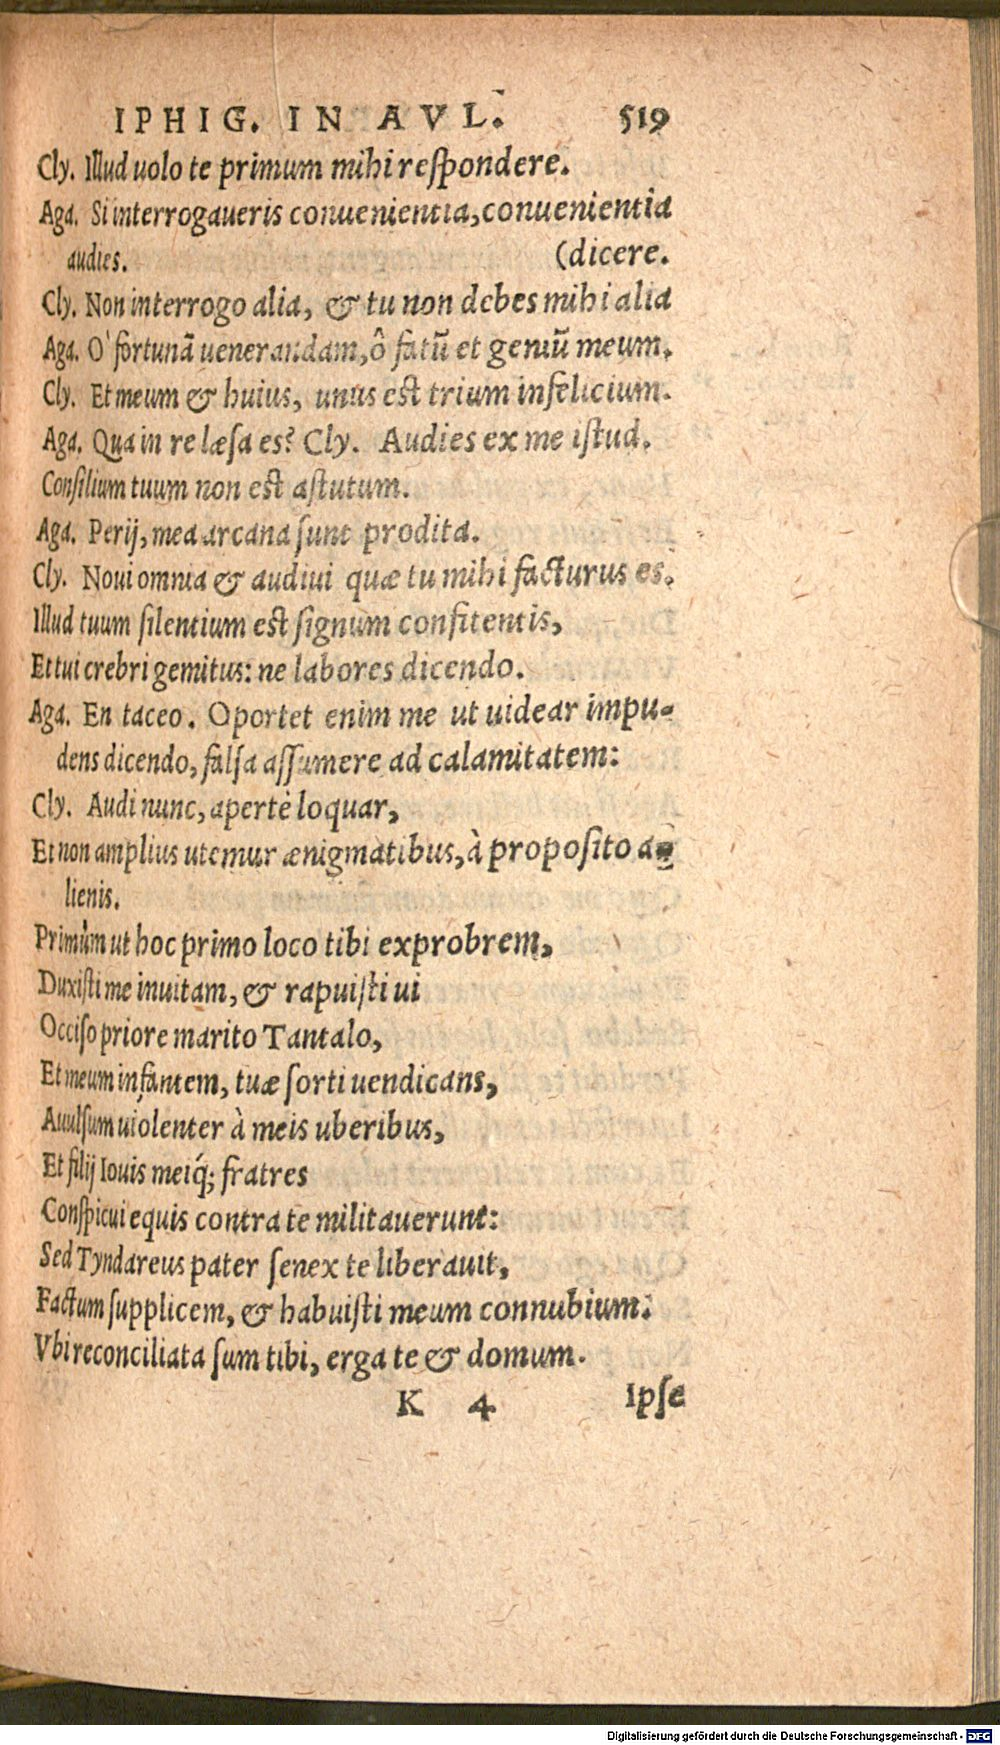 IPHIG. IN AVL. 519
Cly. Illud uolo te primum mihi reſpondere.
Aga. Si interrogaueris conuenientia, conuenientia
audies. (dicere.
Cly. Non interrogo alia, & tu non debes mihi alia
Aga. O' fortunā uenerandam, ô fatū et geniū meum.
Cly. Et meum & huius, unus est trium infelicium.
Aga. Qua in re læſa es? Cly. Audies ex me iſtud.
Conſilium tuum non est aſtutum.
Aga. Perij, mea arcana ſunt prodita.
Cly. Noui omnia & audiui quæ tu mihi facturus es.
Illud tuum ſilentium est ſignum confitentis,
Et tui crebri gemitus: ne labores dicendo.
Aga. En taceo. Oportet enim me ut uidear impu-
dens dicendo, falſa aſſumere ad calamitatem:
Cly. Audi nunc, apertè loquar,
Et non amplius utemur ænigmatibus, à propoſito a-
lienis.
Primùm ut hoc primo loco tibi exprobrem,
Duxiſti me inuitam, & rapuiſti ui
Occiſo priore marito Tantalo,
Et meum infantem, tuæ ſorti uendicans,
Auulſum uiolenter à meis uberibus,
Et filij Iouis meiq́; fratres
Conſpicui equis contra te militauerunt:
Sed Tyndareus pater ſenex te liberauit,
Factum ſupplicem, & habuiſti meum connubium:
Vbi reconciliata ſum tibi, erga te & domum.
K 4 Ipſe
Digitalisierung gefördert durch die Deutsche Forschungsgemeinschaft - DFG